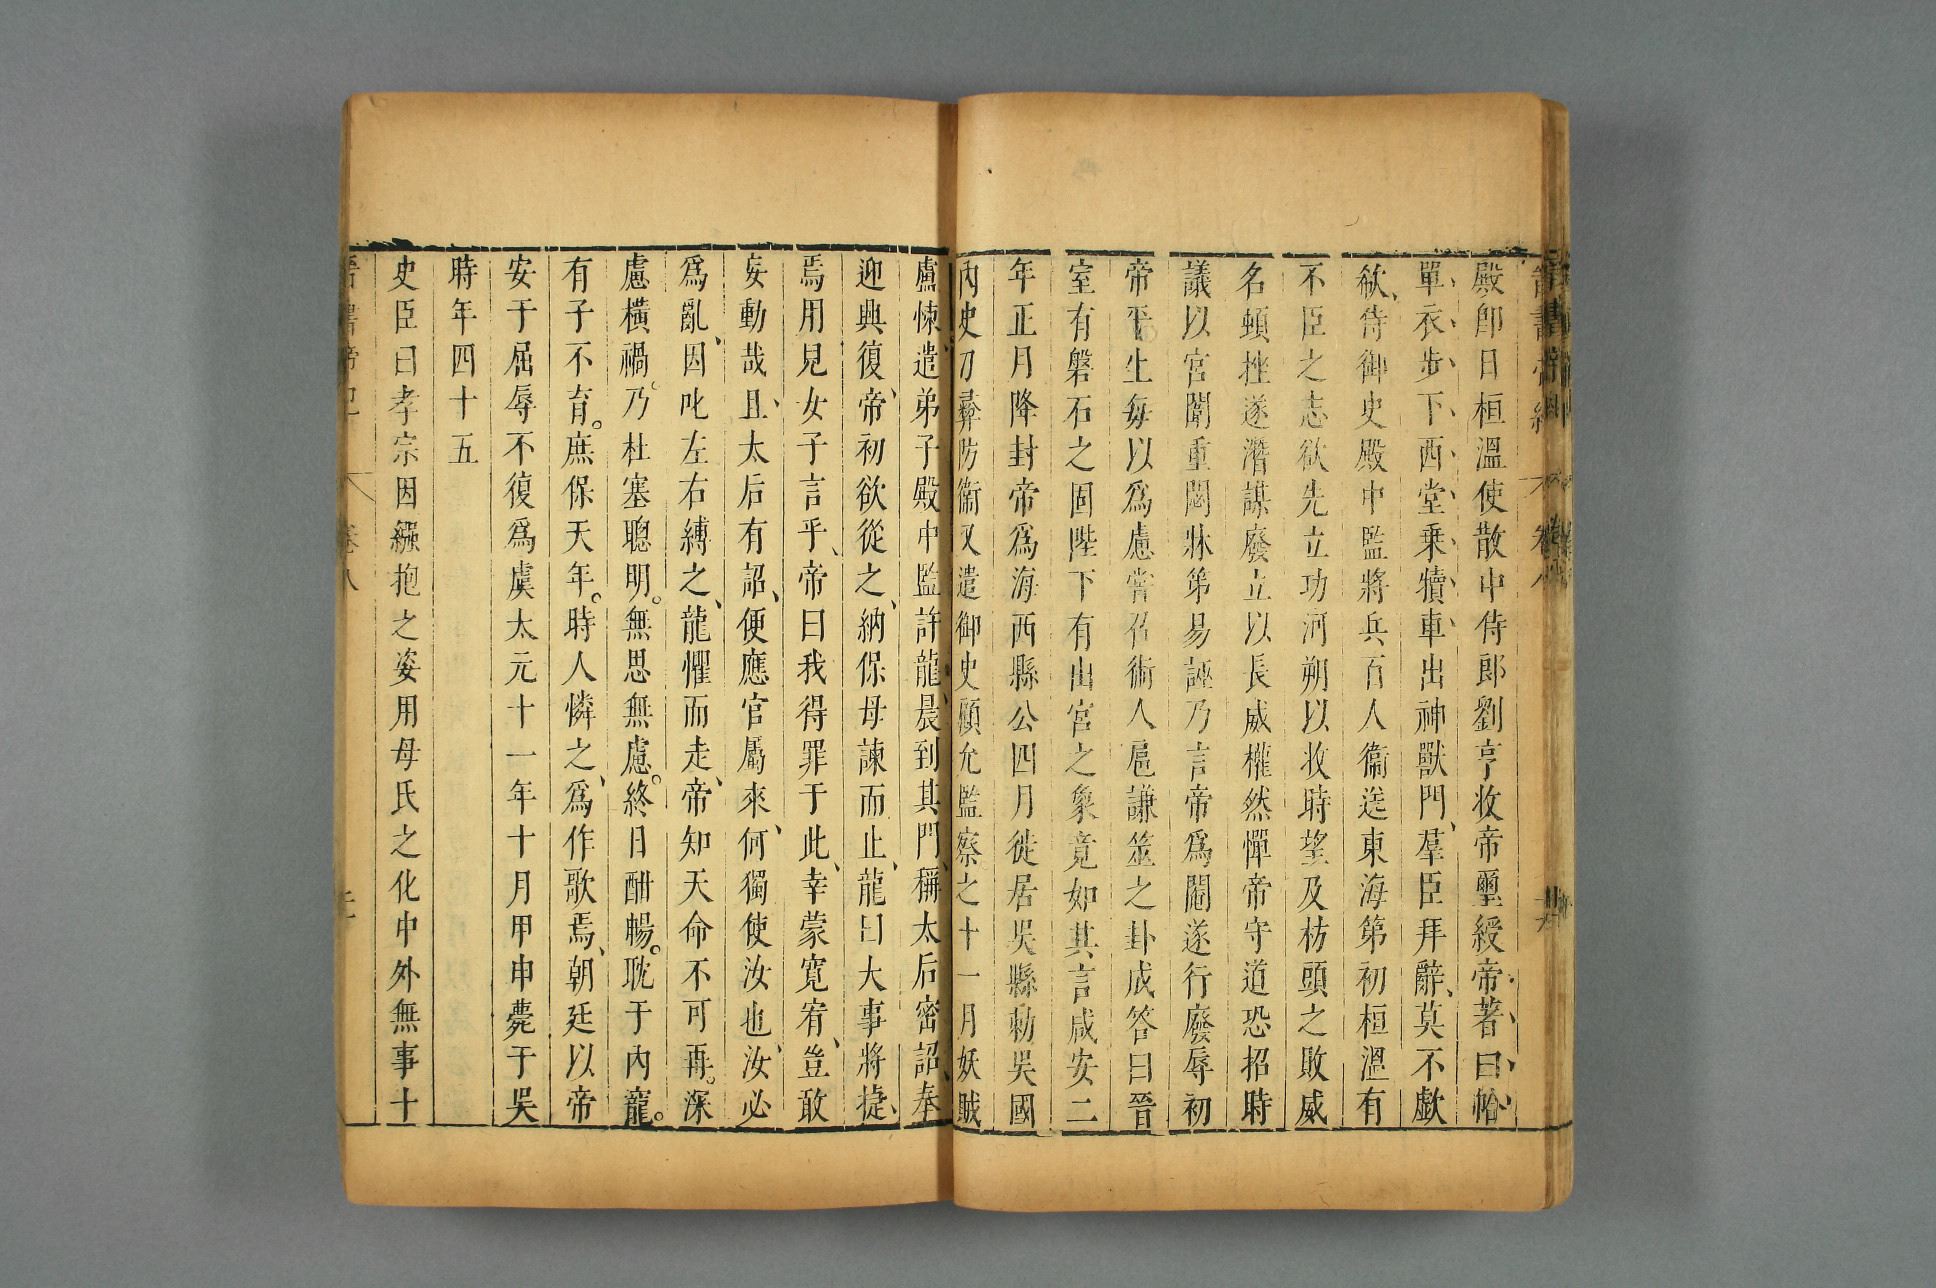 殿卽日桓溫使散中侍郎劉亨收帝璽綬帝著白帢
單衣步下西堂乗犢車出神獸門羣臣拜辭莫不歔
欷侍御史殿中監將兵百人衞送東海第初桓溫有
不臣之志欲先立功河朔以收時望及枋頭之敗威
名頓挫遂潛謀廢立以長威權然憚帝守道恐招時
議以宮闈重閟牀第易誣乃言帝爲閹遂行廢辱初
帝平生每以爲慮嘗召術人扈謙筮之卦成答曰晉
室有磐石之固陛下有出宮之象竟如其言咸安二
年正月降封帝爲海西縣公四月徙居吳縣勅吳國
內史刁彝防衞又遣御史顧允監察之十一月妖賊
盧悚遣弟子殿中監許龍晨到其門稱太后密詔奉
迎興復帝初欲從之納保母諫而止龍曰大事將捷
焉用見女子言乎帝曰我得罪于此幸蒙寛宥豈敢
妄動哉且太后有詔便應官屬來何獨使汝也汝必
爲亂因叱左右縛之龍懼而走帝知天命不可再。深
慮橫禍乃杜塞聰明。無思無慮。終日酣暢。耽于內寵。
有子不育。庶保天年。時人憐之爲作歌焉朝廷以帝
安于屈辱不復爲虞太元十一年十月甲申薨于吳
時年四十五
史臣曰孝宗因繦抱之姿用母氏之化中外無事十